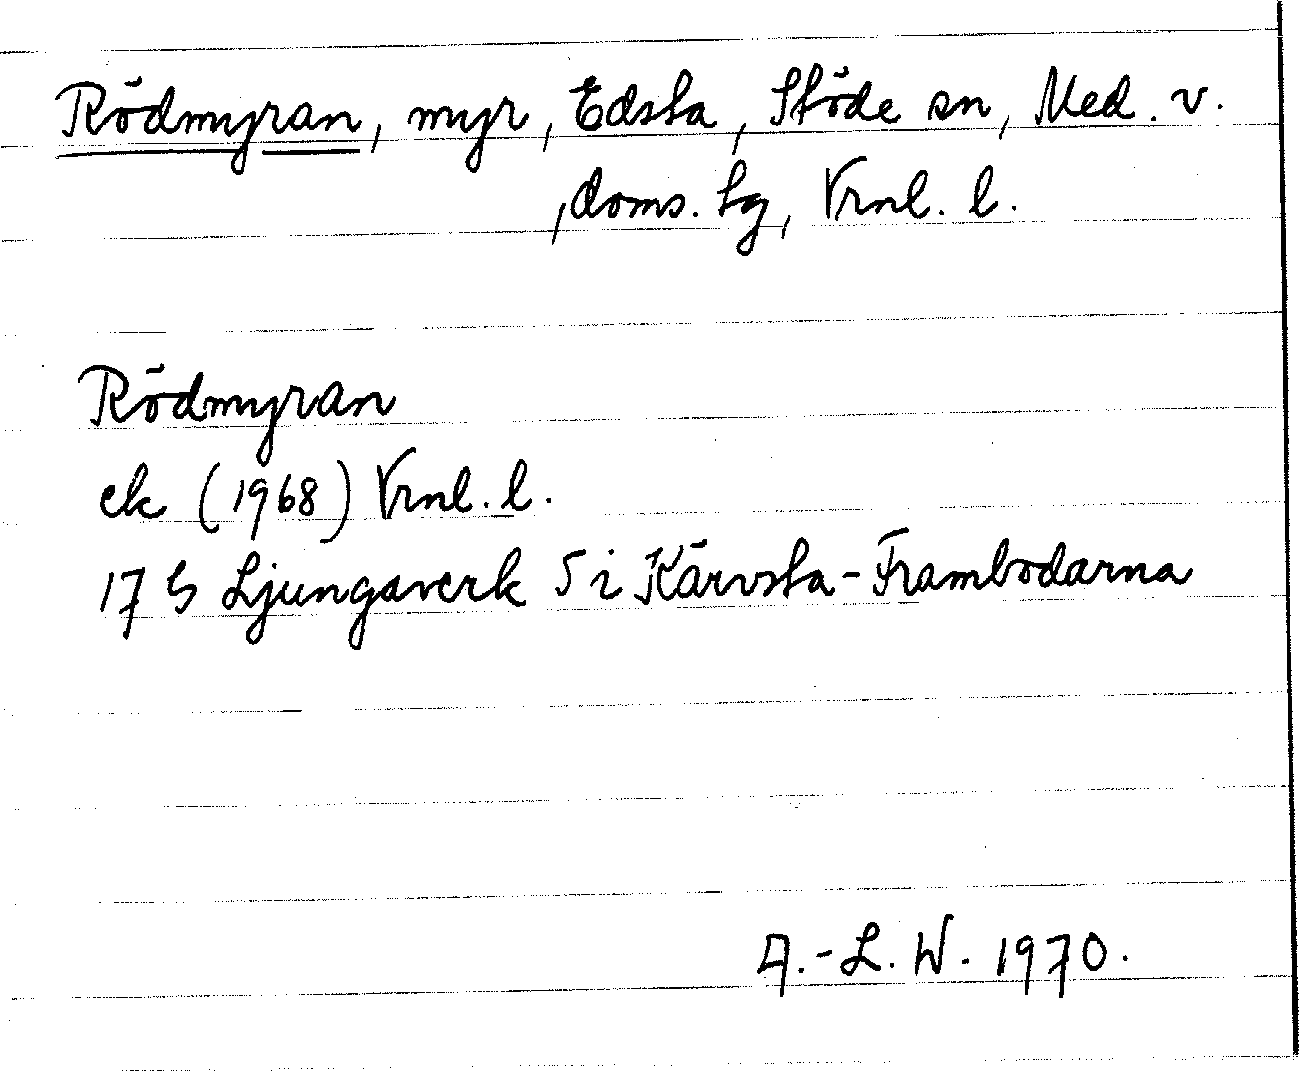 Rödmyran, myr, Edsta, Stöde sn, Med. v.
, doms. sg, Vrnl. l.
Rödmyran
ek (1968) Vrnl. l.
17 G Ljungaverk 5 i Kärvsta-Frambodarna
A.-L. W. 1970.